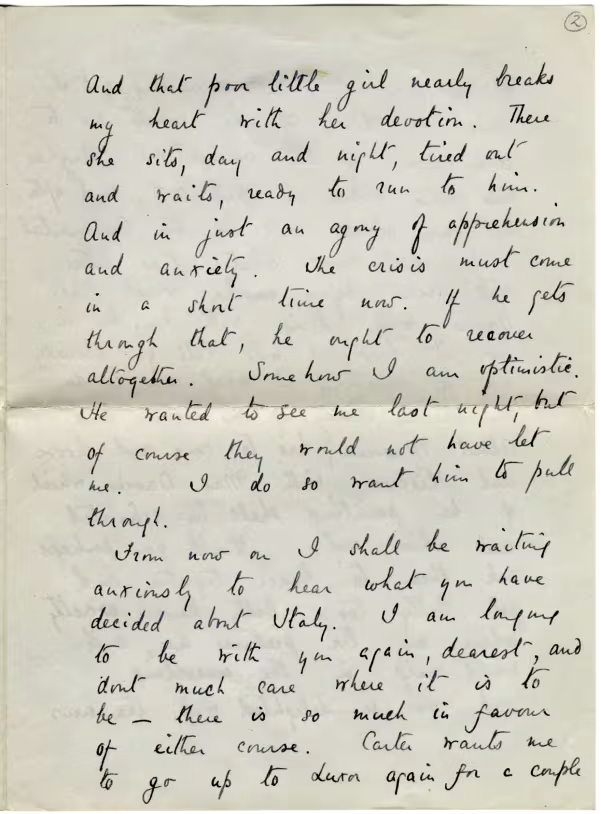 2
And that poor little girl nearly breaks
my heart with her devotion. There
she sits, day and night, tired out
and waits, ready to run to him.
And in just an agony of apprehension
and anxiety. The crisis must come
in a short time now. If he gets
through that, he ought to recover
altogether. Somehow I am optimistic.
He wanted to see me last night, but
of course they would not have let
me. I do so want him to pull
through.
From now on I shall be waiting
anxiously to hear what you have
decided about Italy. I am longing
to be with you again, dearest, and
dont much care where it is to
be — there is so much in favour
of either course. Carter wants me
to go up to Luxor again for a couple